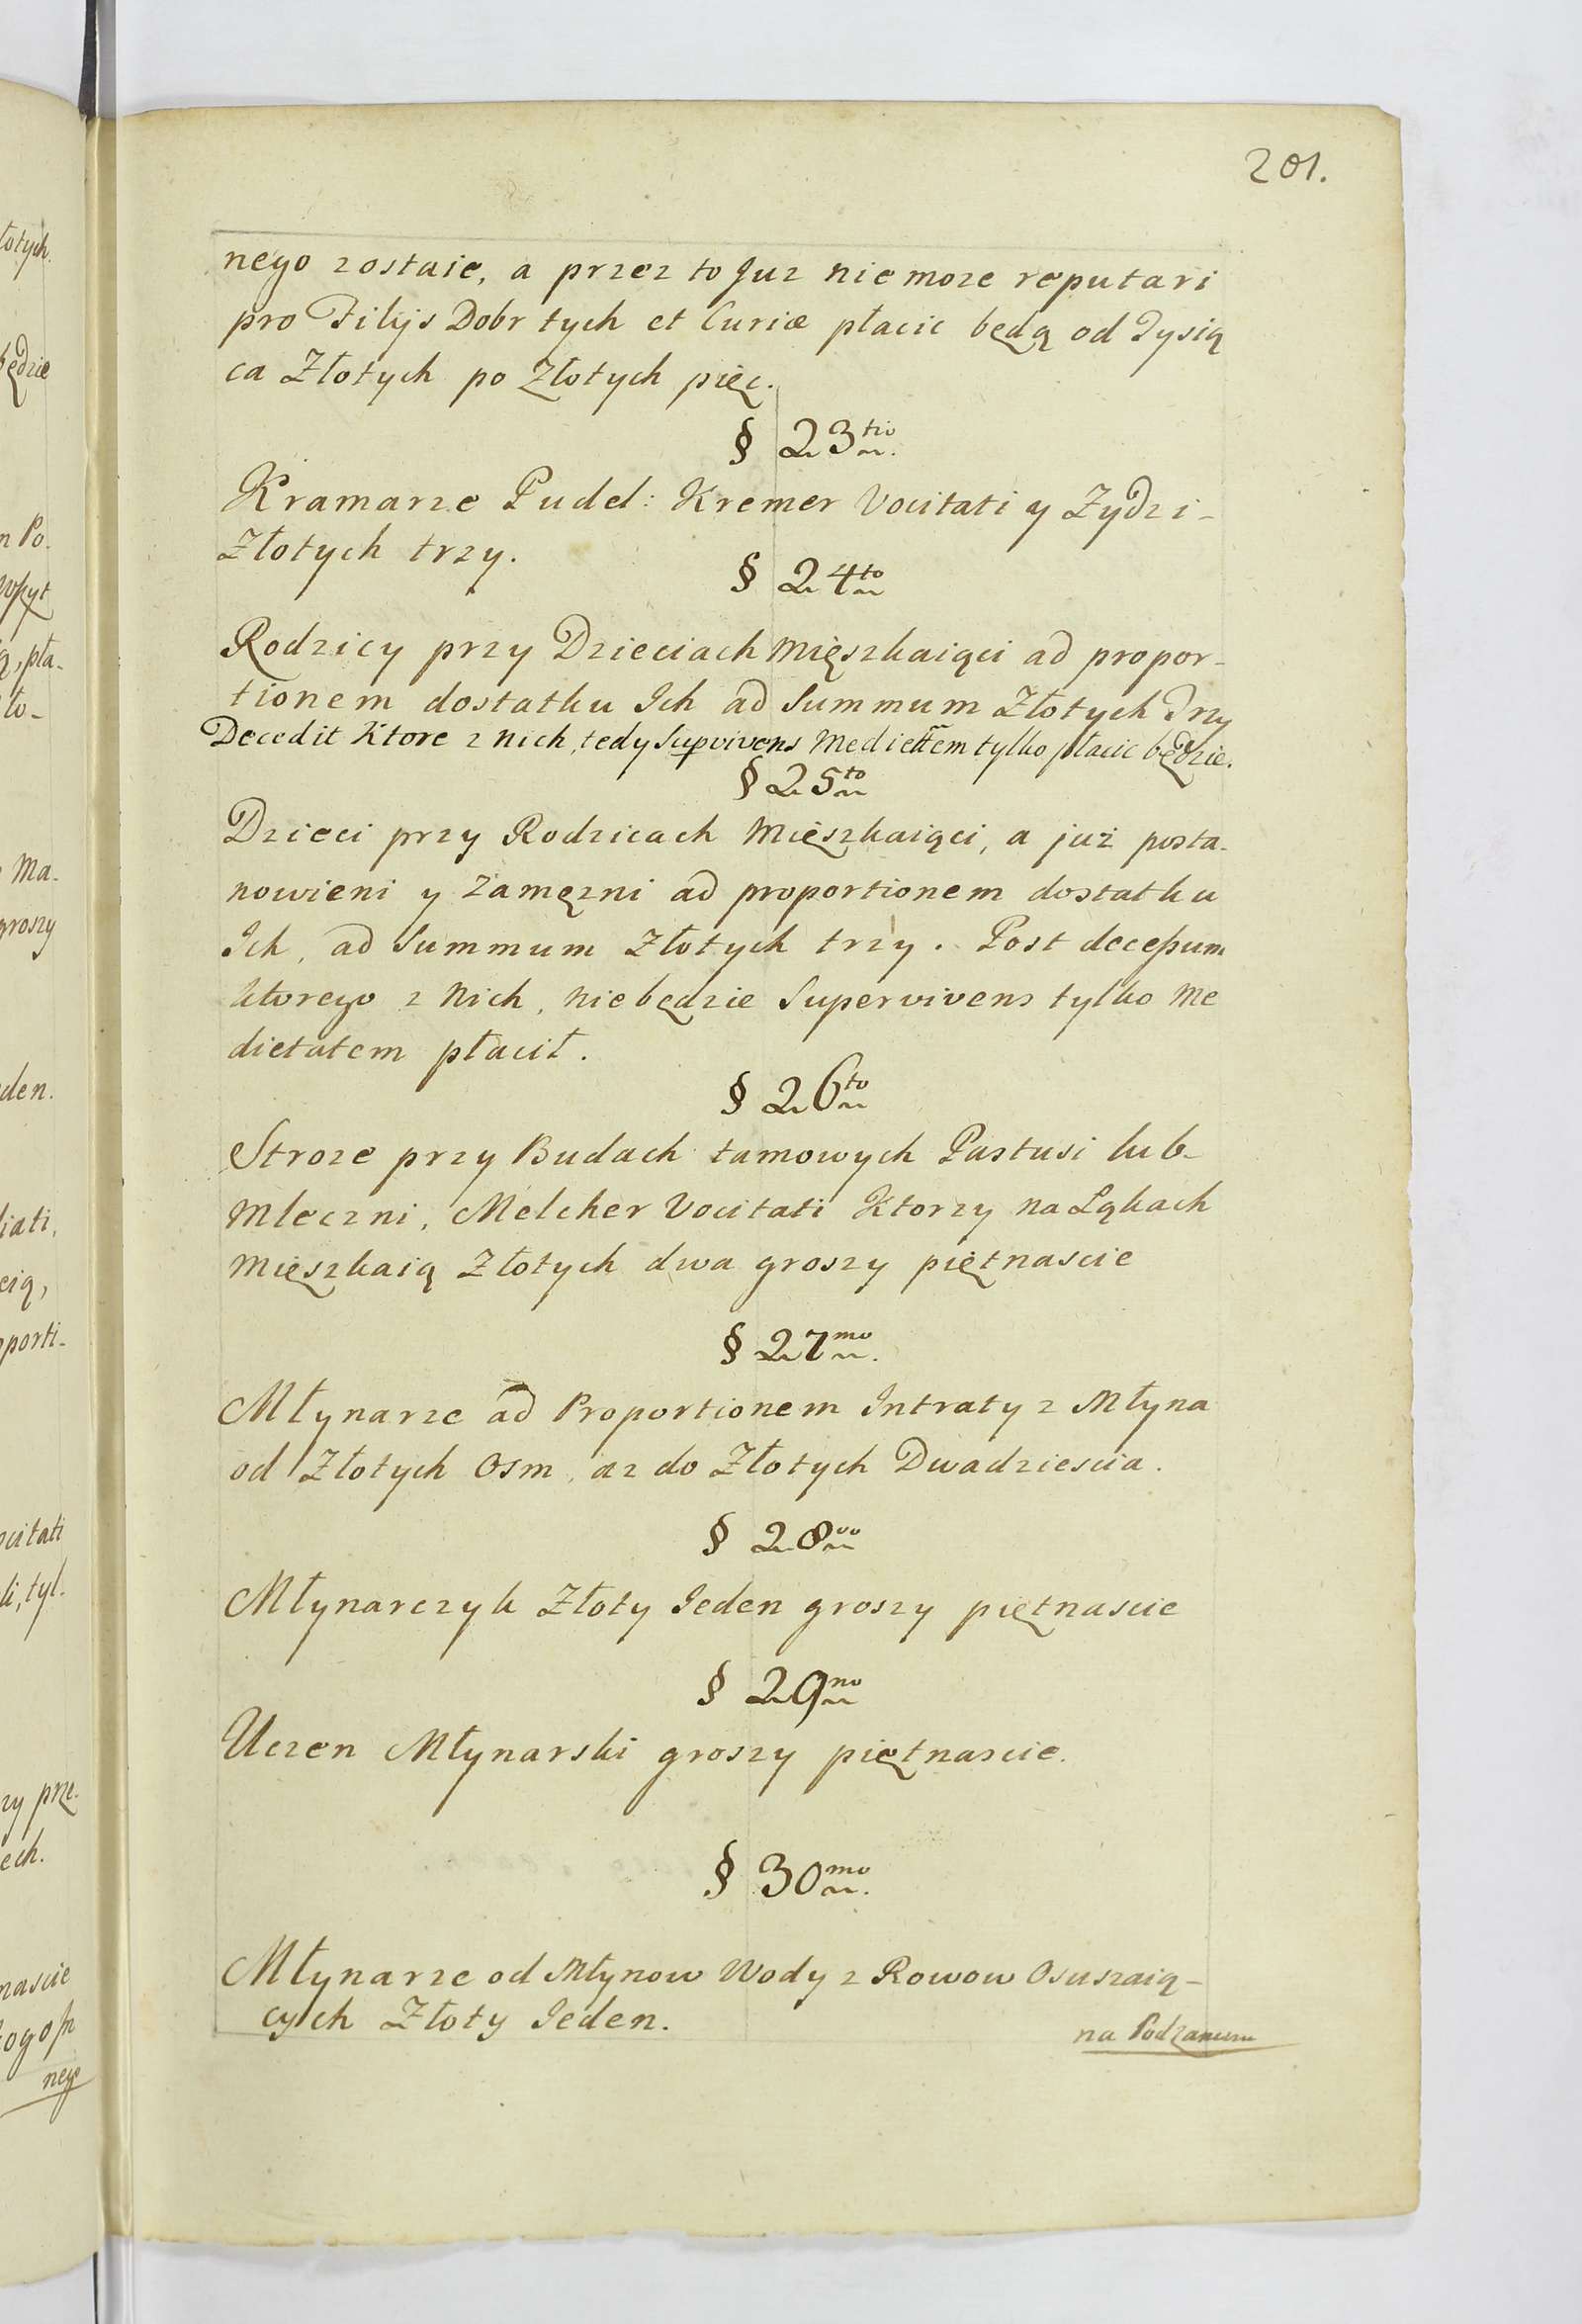 201.
nego zostaie, a przez to Juz nie moze reputari
pro Filijs Dobr tych et Curiæ płacic będą od Tysią
ca Złotych po Złotych pięc.
§ 23tio.
Kramarze Pudel: Kremer Vocitati y Zydzi-
Złotych trzy.
§ 24to
Rodzicy przy Dzieciach Mięszkaiąci ad propor-
tionem dostatku Ich ad Summum Złotych Trzy
Decedit Ktore z nich, tedy Supvivens tylko płacic będzie.
§ 25to
Dzieci przy Rodzicach Mięszkaiąci, a już posta-
nowieni y Zamęzni ad proportionem dostatku
Ich, ad Summum Złotych trzy. Post decessum
ktorego z Nich, nie będzie Supervivens tylko Me
dietatem płacił.
§ 26to
Stroze przy Budach tamowych Pastusi lub-
Mleczni, Melcher Vocitati Ktorzy na Ląkach
Mięszkaią Złotych dwa groszy piętnascie
§ 27mo.
Młynarze ad Proportionem Intraty z Młyna
od Złotych Osm, az do Złotych Dwadziescia.
§ 28vo
Młynarczyk Złoty Ieden groszy piętnascie
§ 29no
Uczen Młynarski groszy piętnascie.
§ 30mo.
Młynarze od Młynow Wody z Rowow Osuszaią-
cych Złoty Ieden.
na